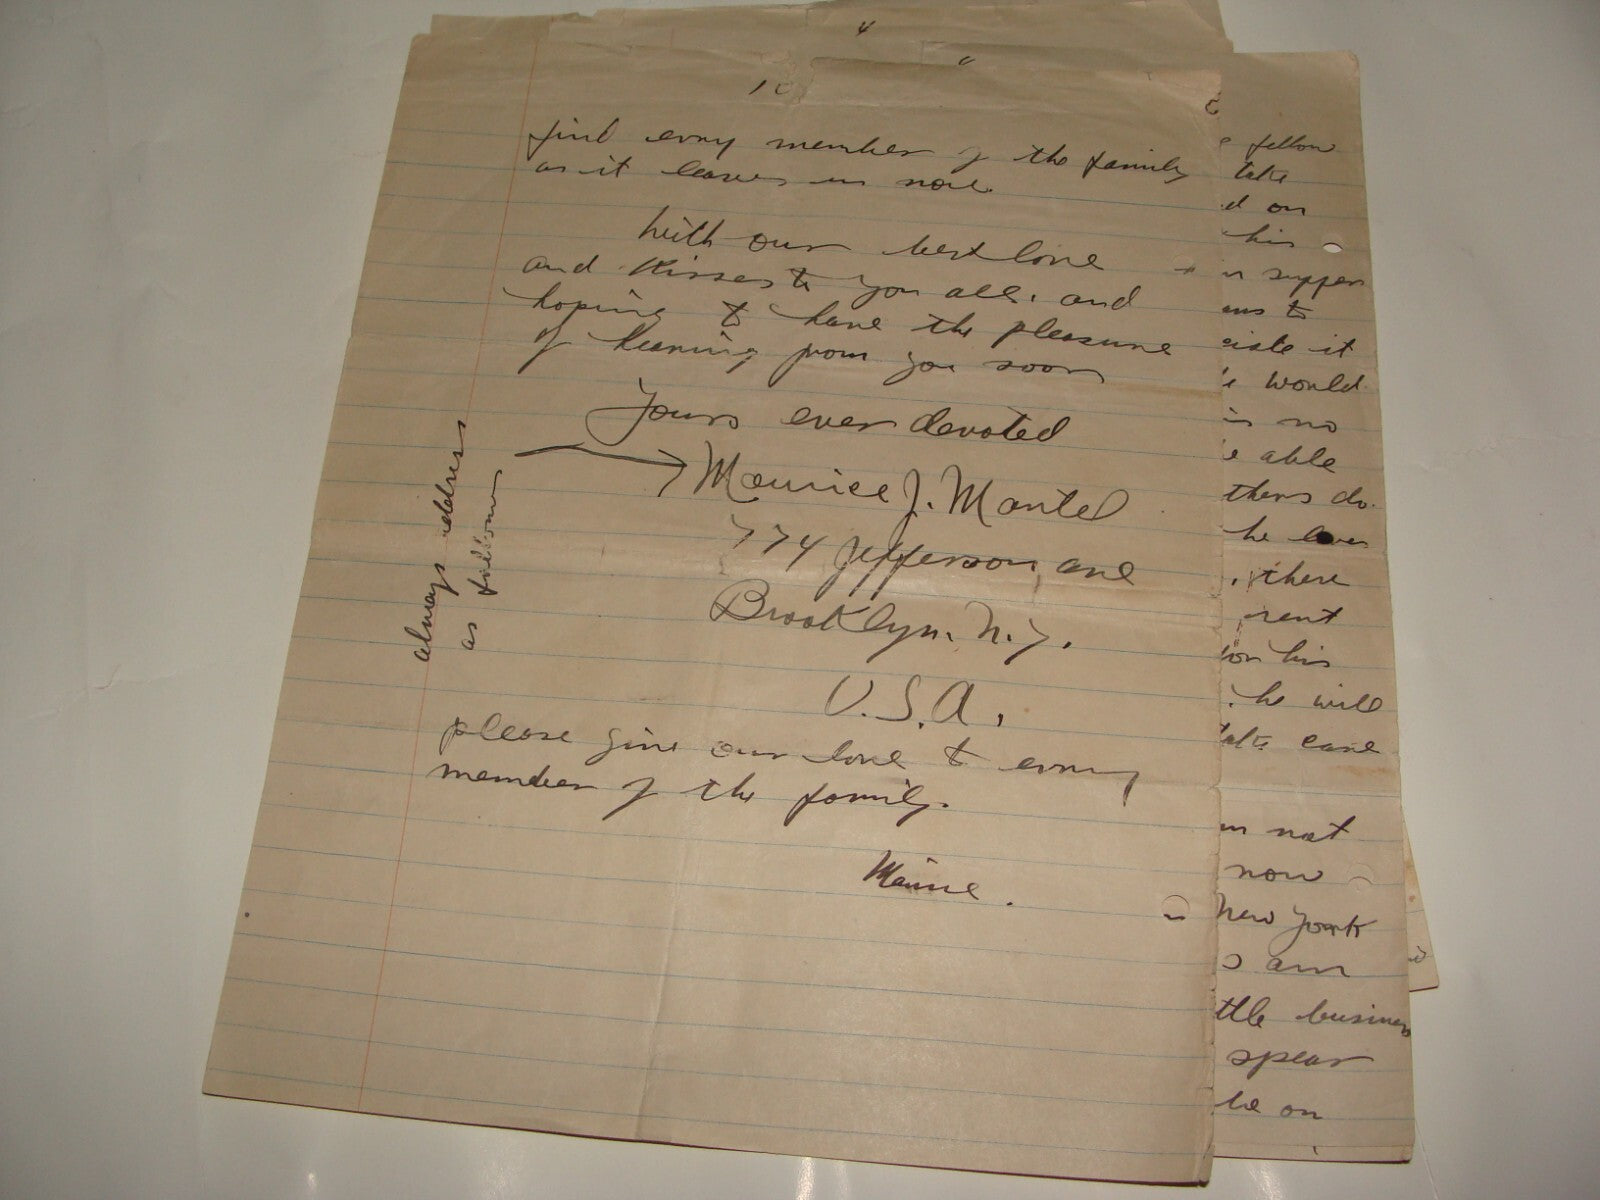 find evry member of the family
as it leaves us now.
With our best love
and kisses to you all. and
hoping to have the pleasure
of hearing from you soon
Yours ever devoted
Maurice J. Mantel
774 Jefferson ave
Brooklyn. N.Y.
U.S.A.
always address
as follows
please give our love to evry
member of the family.
4
fellow
take
on
his
supper
to
it
would
no
able
do.
he
there
rent
his
he will
care
not
now
New York
am
business
spear
on